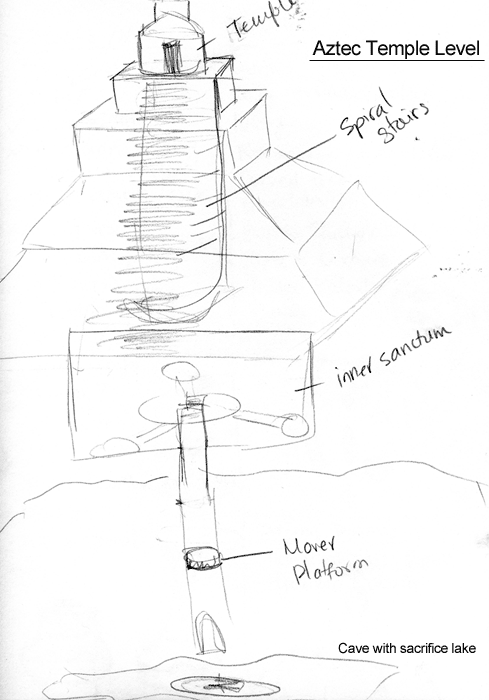 Temple
Aztec Temple Level
Spiral
stairs
inner sanctum
Mover
Platform
Cave with sacrifice lake